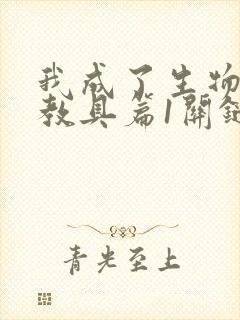 我成了生物
教具篇1關鍵
青光至上